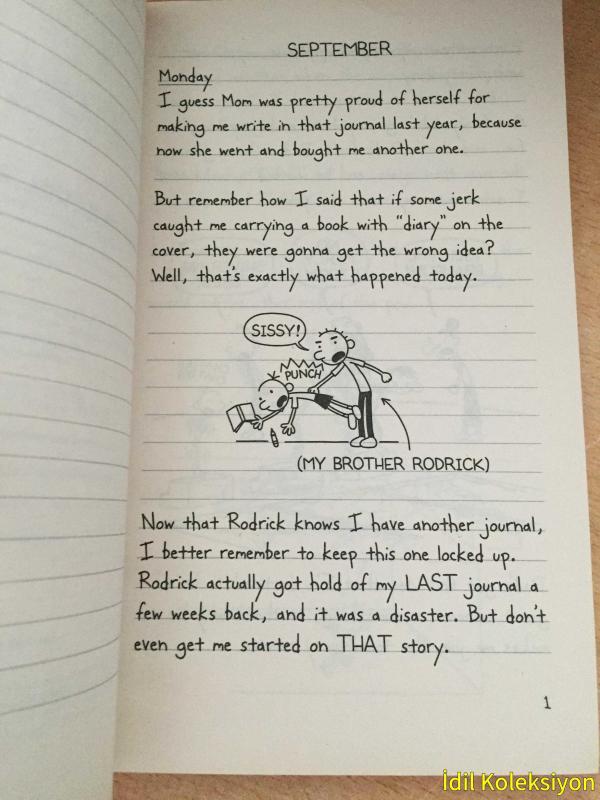 SEPTEMBER
Monday
I guess Mom was pretty proud of herself for
making me write in that journal last year, because
now she went and bought me another one.
But remember how I said that if some jerk
caught me carrying a book with "diary" on the
cover, they were gonna get the wrong idea?
Well, that's exactly what happened today.
SISSY!
PUNCH
(MY BROTHER RODRICK)
Now that Rodrick knows I have another journal,
I better remember to keep this one locked up.
Rodrick actually got hold of my LAST journal a
few weeks back, and it was a disaster. But don't
even get me started on THAT story.
1
İdil Koleksiyon